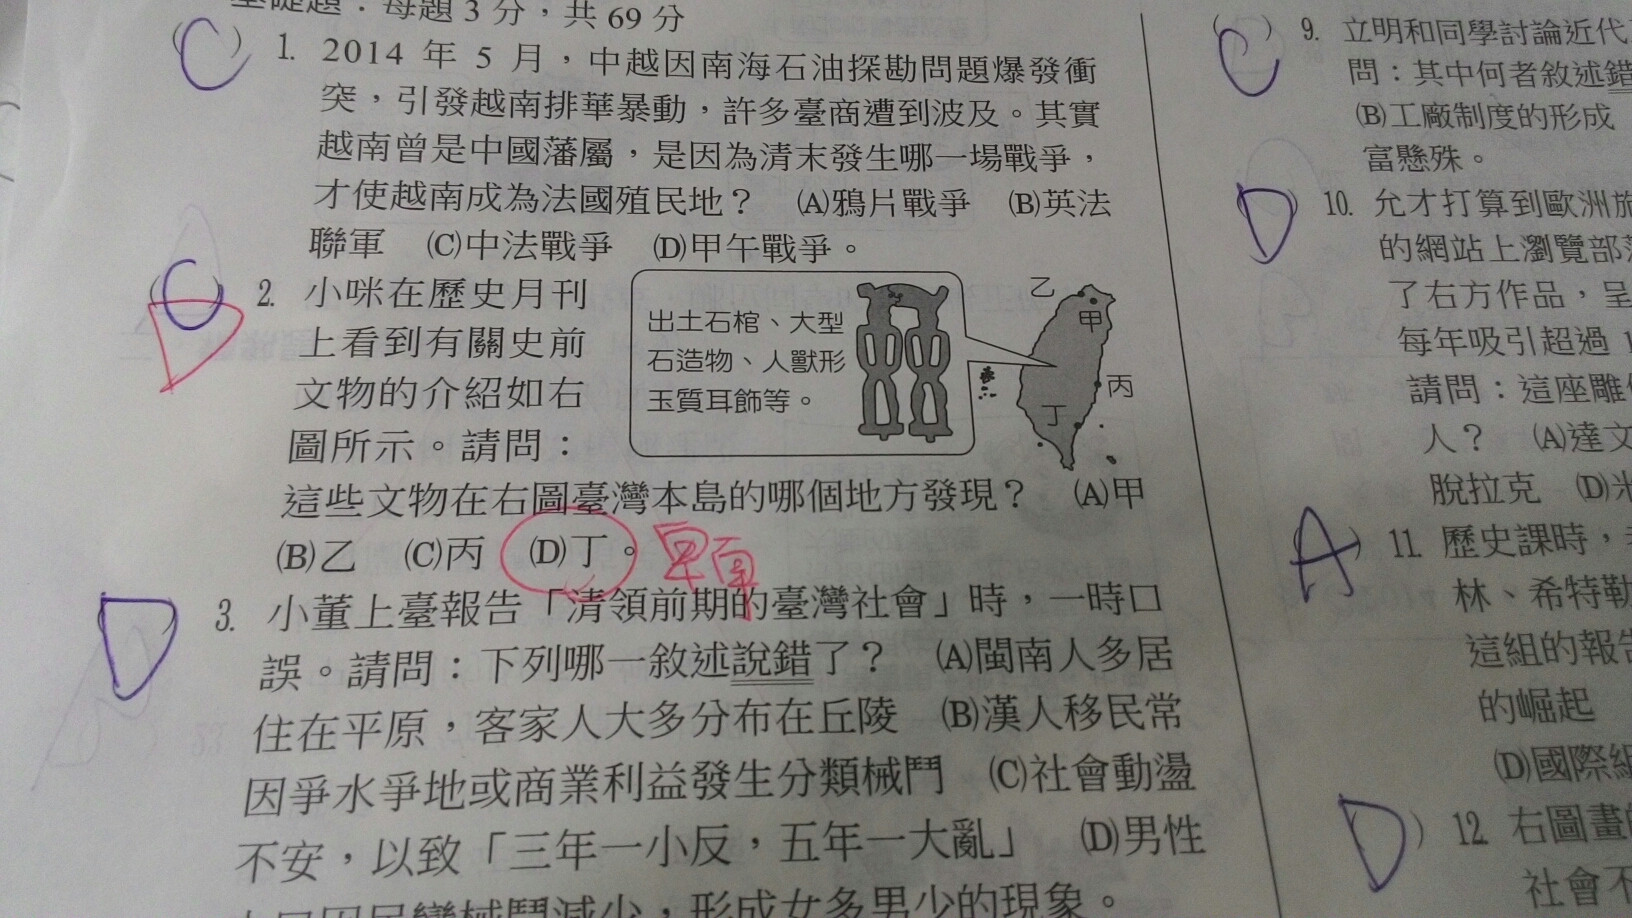 基礎題：每題3分，共69分
(C) 1. 2014年5月，中越因南海石油探勘問題爆發衝
突，引發越南排華暴動，許多臺商遭到波及。其實
越南曾是中國藩屬，是因為清末發生哪一場戰爭，
才使越南成為法國殖民地？ (A)鴉片戰爭 (B)英法
聯軍 (C)中法戰爭 (D)甲午戰爭。
(C) D 2. 小咪在歷史月刊
上看到有關史前
文物的介紹如右
圖所示。請問：
出土石棺、大型
石造物、人獸形
玉質耳飾等。
乙
甲
丙
丁
這些文物在右圖臺灣本島的哪個地方發現？ (A)甲
(B)乙 (C)丙 (D)丁。 卑南
D 3. 小董上臺報告「清領前期的臺灣社會」時，一時口
誤。請問：下列哪一敘述說錯了？ (A)閩南人多居
住在平原，客家人大多分布在丘陵 (B)漢人移民常
因爭水爭地或商業利益發生分類械鬥 (C)社會動盪
不安，以致「三年一小反，五年一大亂」 (D)男性
減少，形成女多男少的現象。
(C) 9. 立明和同學討論近代
問：其中何者敘述錯
(B)工廠制度的形成
富懸殊。
D 10. 允才打算到歐洲旅
的網站上瀏覽部
了右方作品，呈
每年吸引超過
請問：這座雕
人？ (A)達文
脫拉克 (D)米
A) 11. 歷史課時，
林、希特勒
這組的報告
的崛起
(D)國際組
D) 12. 右圖畫的
社會不